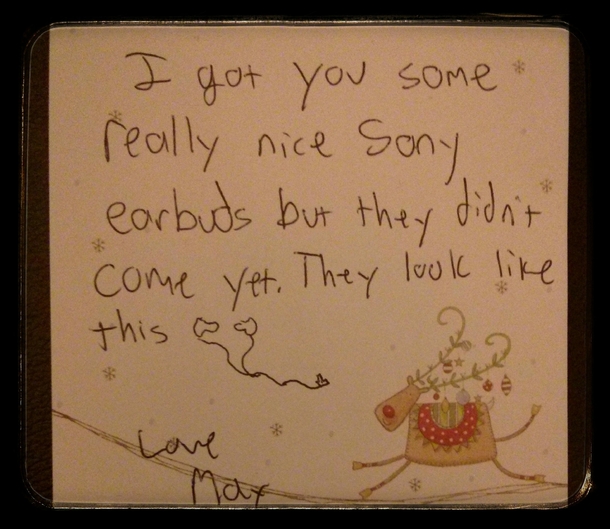 I got you some
really nice Sony
earbuds but they didn't
come yet. They look like
this
Love
Max